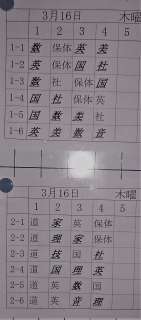 3月16日 木曜
1 2 3 4 5
1-1 数 保体 英 美
1-2 英 保体 国 社
1-3 数 社 保体 国
1-4 国 社 保体 英
1-5 国 数 美 社
1-6 英 美 数 音
3月16日 木曜
1 2 3 4 5
2-1 道 家 英 保体
2-2 道 理 家 保体
2-3 道 技 国 社
2-4 道 国 理 英
2-5 道 英 数 国
2-6 道 英 音 理